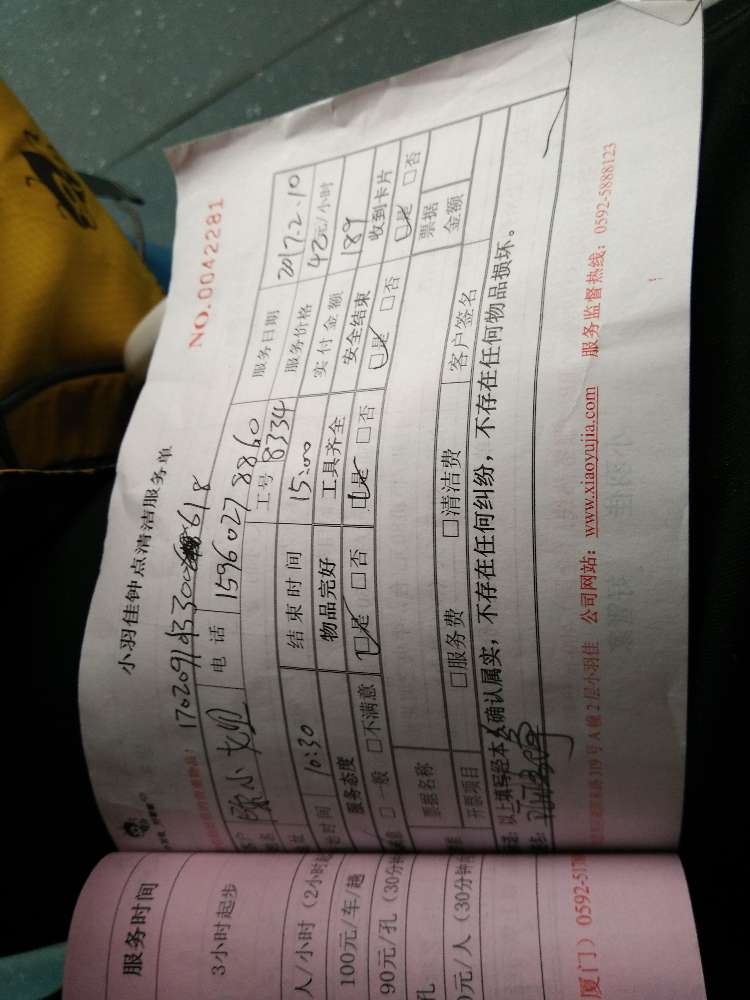 NO.0042281
小羽佳钟点清洁服务单
电话 15960278860 服务日期 2017.2.10
工号 B334 服务价格 42元/小时
10:30 结束时间 15:00 实付金额 189
服务态度 物品完好 工具齐全 安全结束 收到卡片
□一般 □不满意 □是 □否 □是 □否 □是 □否 □是 □否
票据名称 □服务费 □清洁费 票据金额
开票项目 客户签名
以上填写经本人确认属实，不存在任何纠纷，不存在任何物品损坏。
319号A幢2层小羽佳 公司网站：www.xiaoyujia.com 服务监督热线：0592-5888123
服务时间
3小时起步
人/小时（2小时起
100元/车/趟
90元/孔（30分钟
孔
0元/人（30分钟
厦门）0592-517